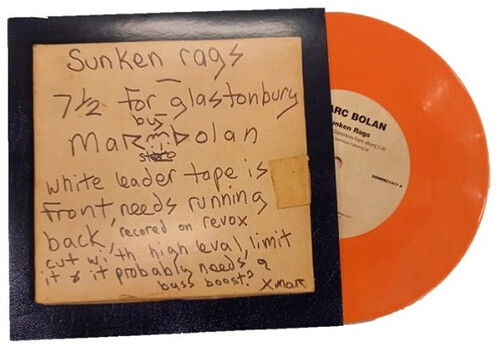 Sunken rags
7½ for glastonbury
by
MaRc Bolan
white leader tape is
front, needs running
back, recored on revox
cut with high leval limit
it & it probably needs a
bass boost? X marc
ARC BOLAN
unken Rags